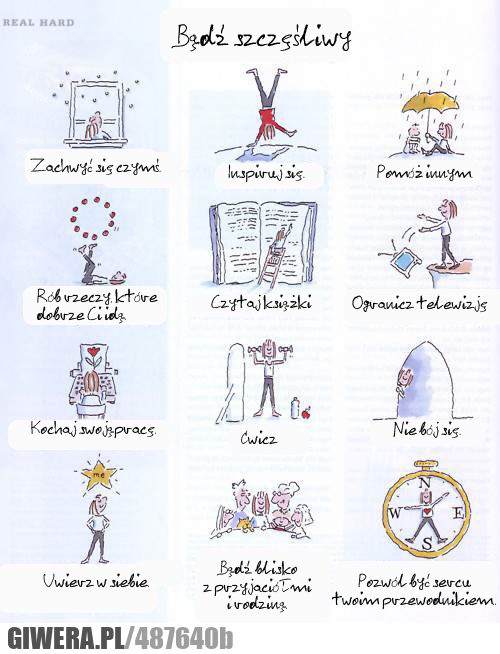 REAL HARD
Bądź szczęśliwy
Zachwyć się czymś.
Inspiruj się.
Pomóż innym.
Rób rzeczy, które
dobrze Ci idą.
Czytaj książki
Ogranicz telewizję
Kochaj swoją pracę.
Ćwicz
Nie bój się.
me
Uwierz w siebie.
Bądź blisko
z przyjaciółmi
i rodziną.
N
W E
S
Pozwól być sercu
twoim przewodnikiem.
GIWERA.PL/487640b